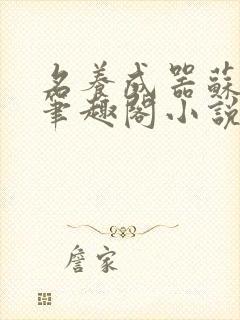 名養成器蘇
筆趣閣小說
詹家